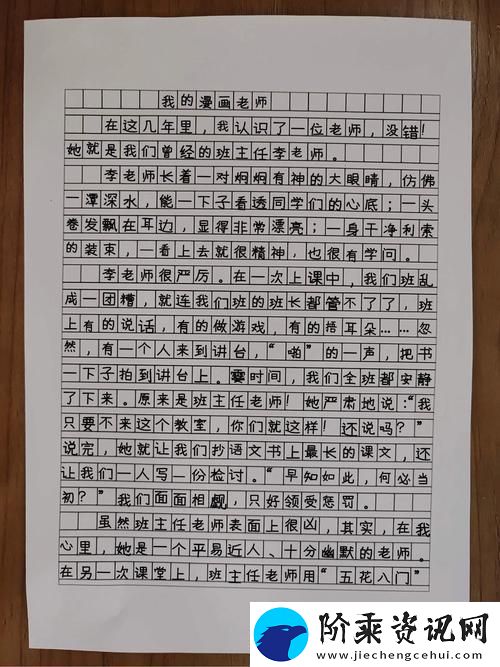 我的漫画老师
在这几年里，我认识了一位老师，没错！
她就是我们曾经的班主任李老师。
李老师长着一对炯炯有神的大眼睛，仿佛
一潭深水，能一下子看透同学们的心底；一头
卷发飘在耳边，显得非常漂亮；一身干净利索
的装束，一看上去就很精神，也很有学问。
李老师很严厉。在一次上课中，我们班乱
成一团糟，就连我们班的班长都管不了了，班
上有的说话，有的做游戏，有的捂耳朵……忽
然，有一个人来到讲台，“啪”的一声，把书
一下子拍到讲台上。霎时间，我们全班都安静
了下来。原来是班主任老师！她严肃地说：“我
只要不来这个教室，你们就这样！还说吗？”
说完，她就让我们抄语文书上最长的课文，还
让我们一人写一份检讨。“早知如此，何必当
初？”我们面面相觑，只好领受惩罚。
虽然班主任老师表面上很凶，其实，在我
心里，她是一个平易近人、十分幽默的老师。
在另一次课堂上，班主任老师用“五花八门”
阶乘资讯网
www.jiechengcehui.com